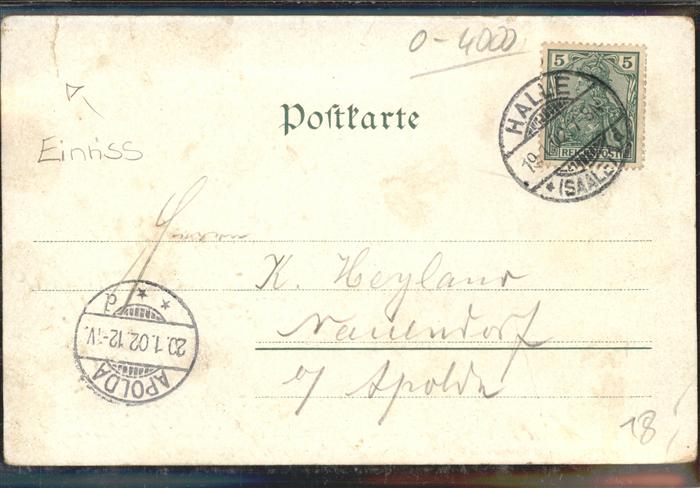 0-4000
5 5
REICHSPOST
HALLE
(SAALE)
Postkarte
Einriss
Herrn
K. Heyland
Nauendorf
b/ Apolda
d
20.1.02.12-1V.
APOLDA
18